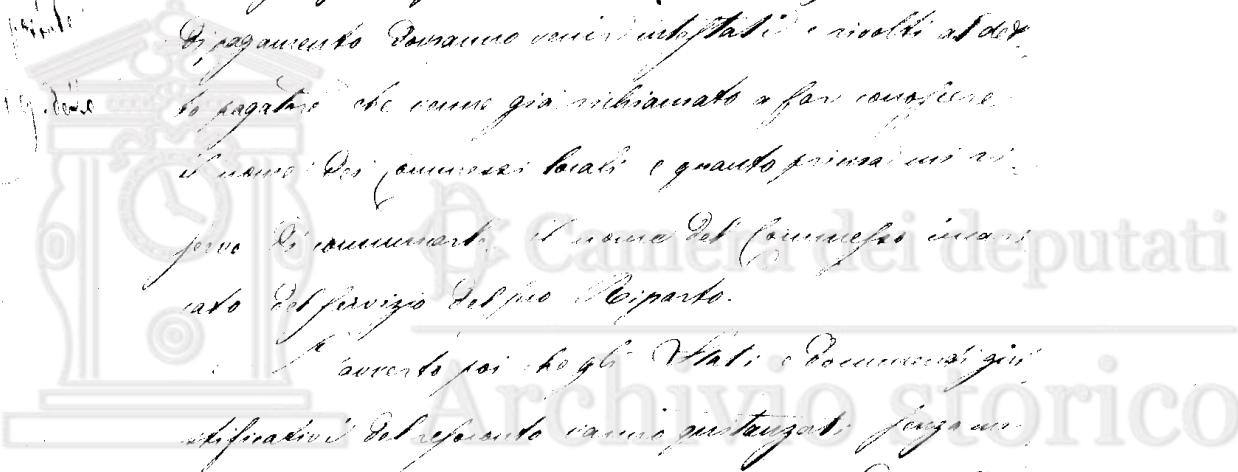 di pagamento dovranno venir intestati e rivolti al det-
to pagatore che venne già richiamato a far conoscere
il nome dei Commessi locali e quanto prima mi ri-
servo di comunicarle il nome del Commesso incari
cato del servizio del suo Riparto.
L'avverto poi che gli Stati e Documenti giu
stificativi del vanno quitanzati senza
Camera dei deputati
Archivio storico